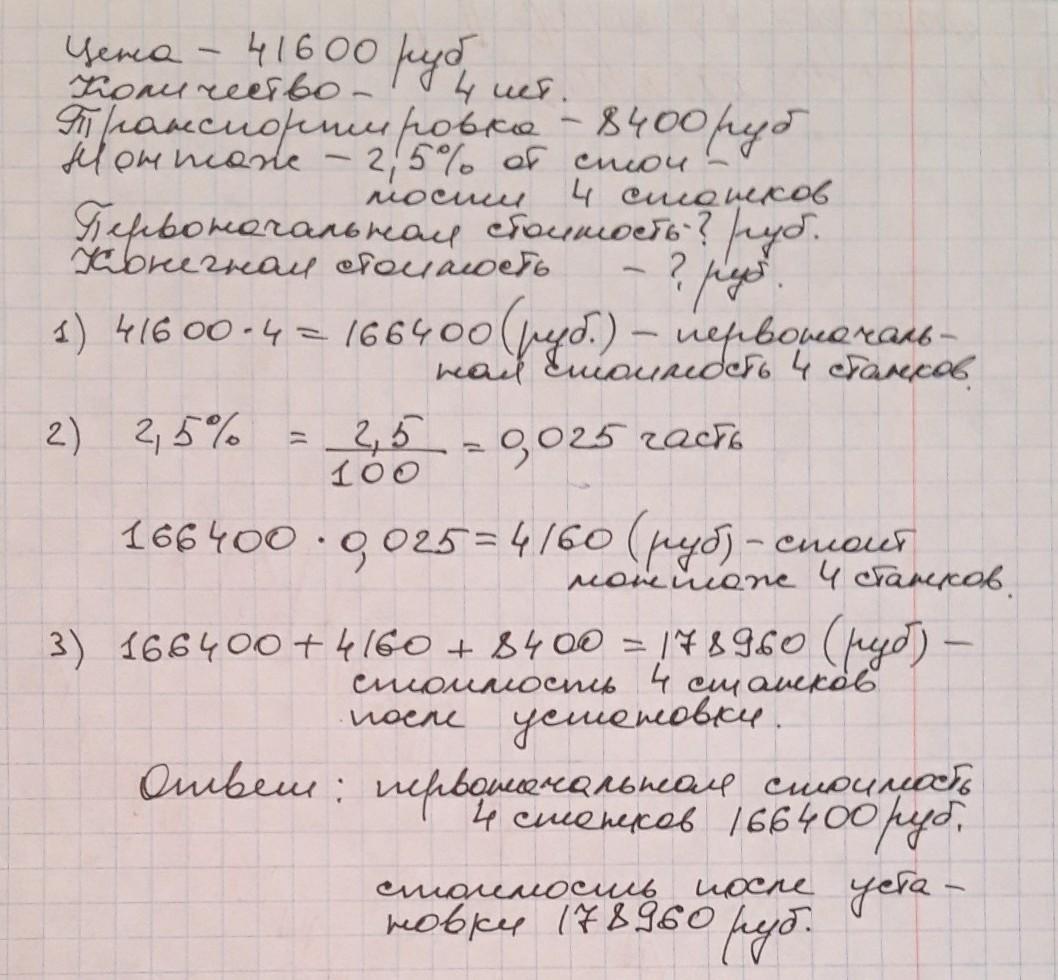 Цена – 41600 руб
Количество – 4 шт.
Транспортировка – 8400 руб
Монтаж – 2,5% от стои –
мости 4 станков
Первоначальная стоимость-? руб.
Конечная стоимость – ? руб.
1) 41600 · 4 = 166400 (руб.) – первоначаль-
ная стоимость 4 станков.
2) 2,5% = 2,5/100 = 0,025 часть
166400 · 0,025 = 4160 (руб) – стоит
монтаж 4 станков.
3) 166400 + 4160 + 8400 = 178960 (руб) –
стоимость 4 станков
после установки.
Ответ: первоначальная стоимость
4 станков 166400 руб.
стоимость после уста –
новки 178960 руб.